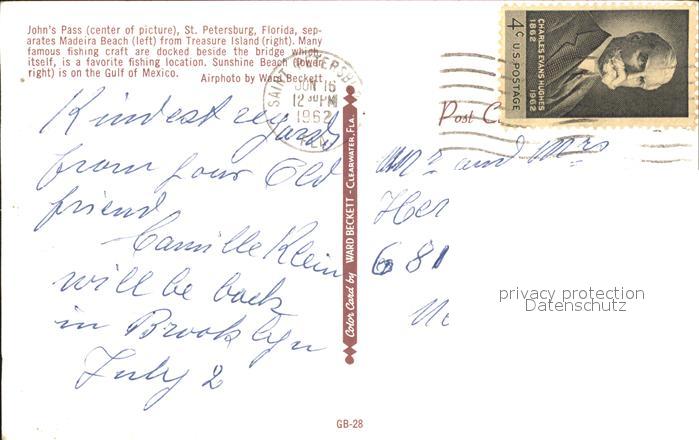 John's Pass (center of picture), St. Petersburg, Florida, sep-
arates Madeira Beach (left) from Treasure Island (right). Many
famous fishing craft are docked beside the bridge which,
itself, is a favorite fishing location. Sunshine Beach (lower
right) is on the Gulf of Mexico. Airphoto by Ward Beckett
SAINT PETERSBURG
JUN 16
12 30 PM
1962
FLA.
4c U.S. POSTAGE
CHARLES EVANS HUGHES
1862 1962
Post C
Kindest regards
from your Old
friend
Camille Klein
will be back
in Brooklyn
July 2
Mr and Mrs
Her
681
Ne
Color Card by WARD BECKETT - CLEARWATER, FLA.
privacy protection
Datenschutz
GB-28